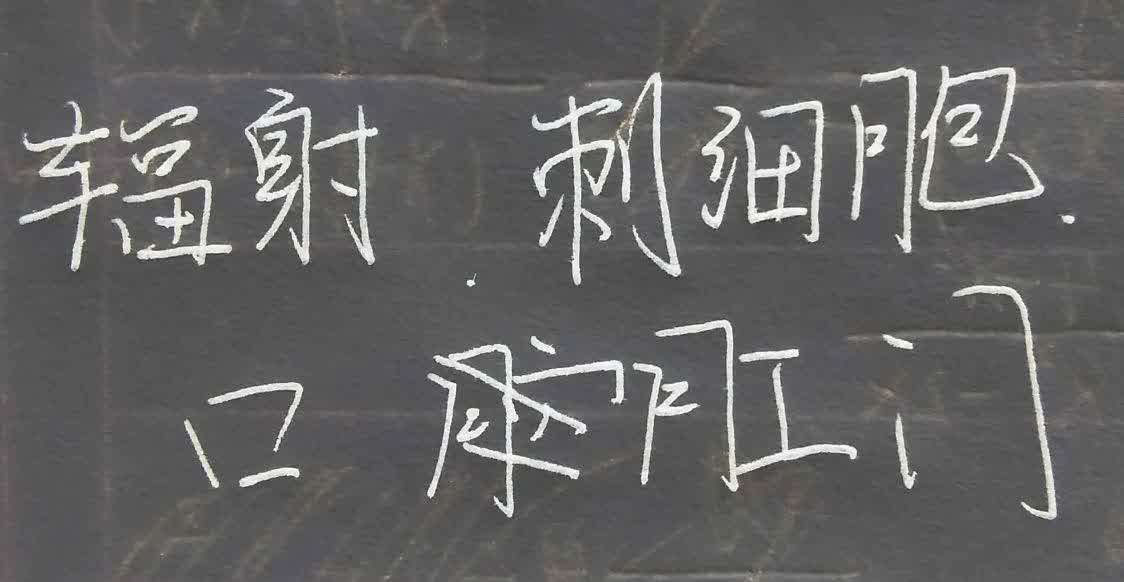 辐射 刺细胞.
口 肛门